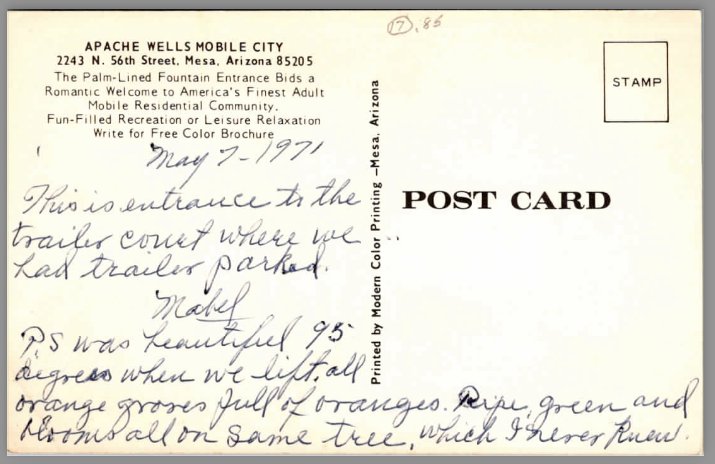 (17) .85
APACHE WELLS MOBILE CITY
2243 N. 56th Street, Mesa, Arizona 85205
The Palm-Lined Fountain Entrance Bids a
Romantic Welcome to America's Finest Adult
Mobile Residential Community.
Fun-Filled Recreation or Leisure Relaxation
Write for Free Color Brochure
STAMP
POST CARD
Printed by Modern Color Printing —Mesa, Arizona
May 7-1971
This is entrance to the
trailer court where we
had trailer parked.
Mabel
P.S was beautiful 95
degrees when we lift. all
orange groves full of oranges. Ripe, green and
blooms all on same tree, which I never knew.